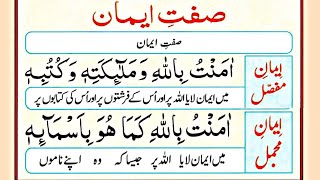 صفتِ ایمان
صفتِ ایمان
ایمانِ مفصّل
اٰمَنْتُ بِاللّٰهِ وَمَلٰٓئِكَتِهٖ وَكُتُبِهٖ
میں ایمان لایا اللہ پر اور اُس کے فرشتوں پر اور اُس کی کتابوں پر
ایمانِ مجمل
اٰمَنْتُ بِاللّٰهِ كَمَا هُوَ بِاَسْمَآئِهٖ
میں ایمان لایا اللہ پر جیسا کہ وہ اپنے ناموں